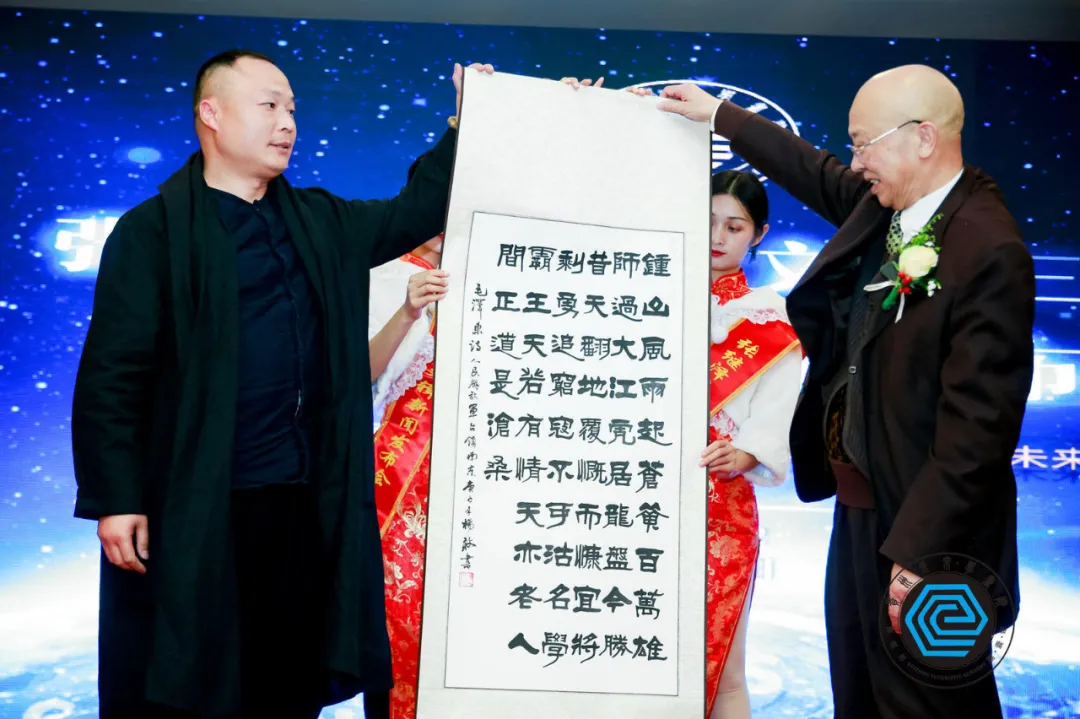 鍾山風雨起蒼黃百萬雄
師過大江虎居龍盤今勝
昔天翻地覆慨而慷宜將
剩勇追窮寇不可沽名學
霸王天若有情天亦老人
間正道是滄桑
毛澤東詩人民解放軍占領南京
张继泽
辑新闻发布会
张
文
三
未来